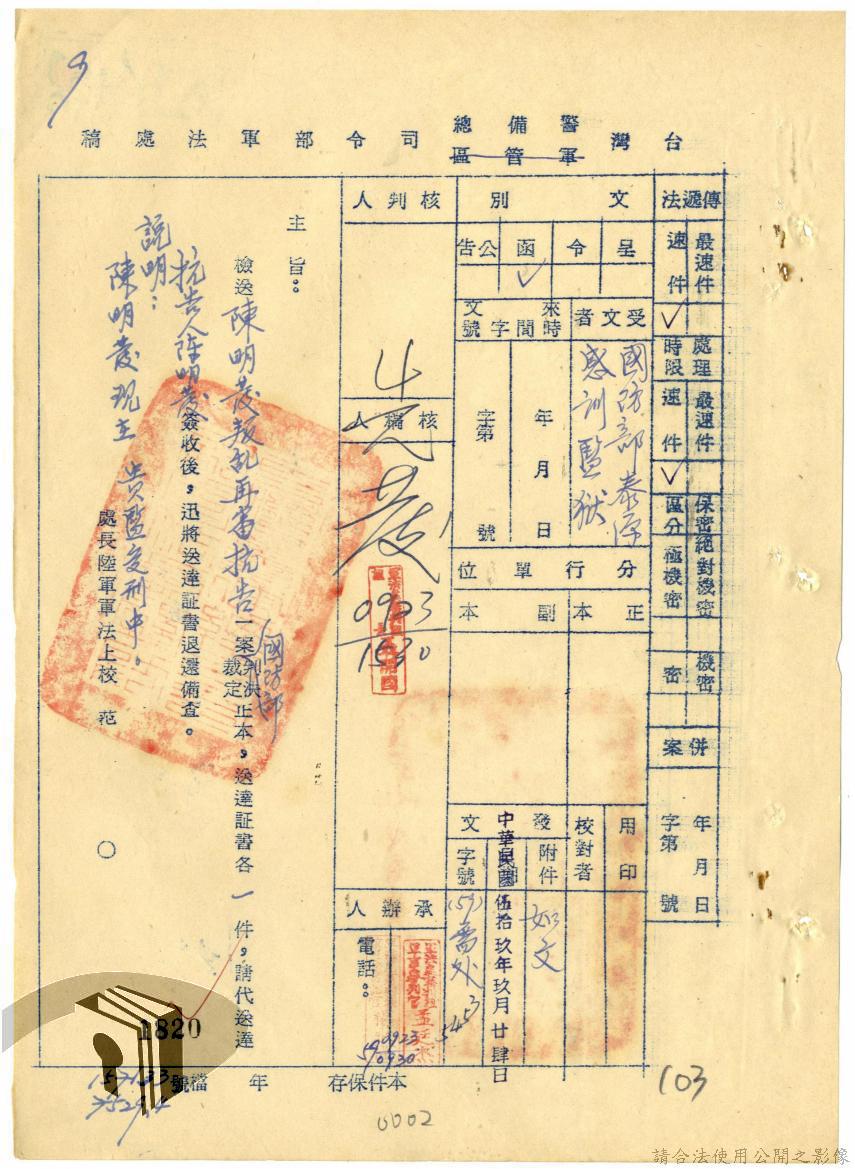 台灣警備總司令部軍法處稿
軍管區
傳遞法
最速件
速件
✓
處理時限
最速件
速件
✓
保密區分
絕對機密
極機密
機密
密
併案
年月日
字第號
文別
呈
令
函
公告
✓
受文者
國防部泰源
感訓監獄
來文
時間
字號
年月日
字第號
分行單位
正本
副本
用印
校對者
發文
附件
如文
時間
中華民國伍拾玖年玖月廿肆日
字號
(59)
5453
核判人
核稿人
0923
1530
承辦人
電話：
0923
0930
主旨：
檢送陳明發叛乱再審抗告一案國防部判決裁定正本，送達証書各一件，請代送達
抗告人陳明發簽收後，迅將送達証書退還備查。
說明：
陳明發現在貴監受刑中。
處長陸軍軍法上校范○
本件保存年檔號
1820
103
0002
請合法使用公開之影像